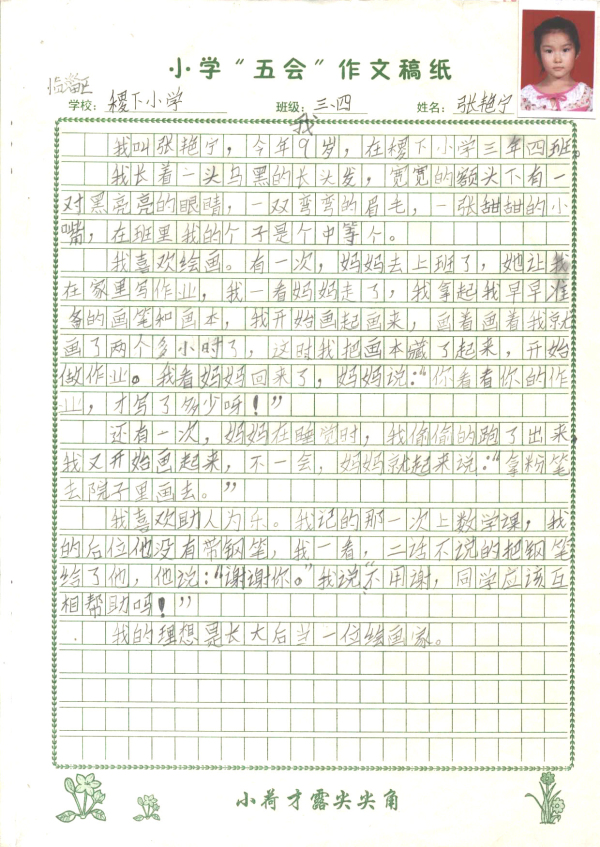 小学“五会”作文稿纸
临淄区
学校：稷下小学 班级：三、四 姓名：张艳宁
我
我叫张艳宁，今年9岁，在稷下小学三年四班。
我长着一头乌黑的长头发，宽宽的额头下有一
对黑亮亮的眼睛，一双弯弯的眉毛，一张甜甜的小
嘴，在班里我的个子是个中等个。
我喜欢绘画。有一次，妈妈去上班了，她让我
在家里写作业，我一看妈妈走了，我拿起我早早准
备的画笔和画本，我开始画起画来，画着画着我就
画了两个多小时了，这时我把画本藏了起来，开始
做作业。我看妈妈回来了，妈妈说：“你看看你的作
业，才写了多少呀！”
还有一次，妈妈在睡觉时，我偷偷的跑了出来，
我又开始画起来，不一会，妈妈就起来说：“拿粉笔
去院子里画去。”
我喜欢助人为乐。我记的那一次上数学课，我
的后位他没有带钢笔，我一看，二话不说的把钢笔
给了他，他说：“谢谢你。”我说“不用谢，同学应该互
相帮助吗！”
我的理想是长大后当一位绘画家。
小荷才露尖尖角